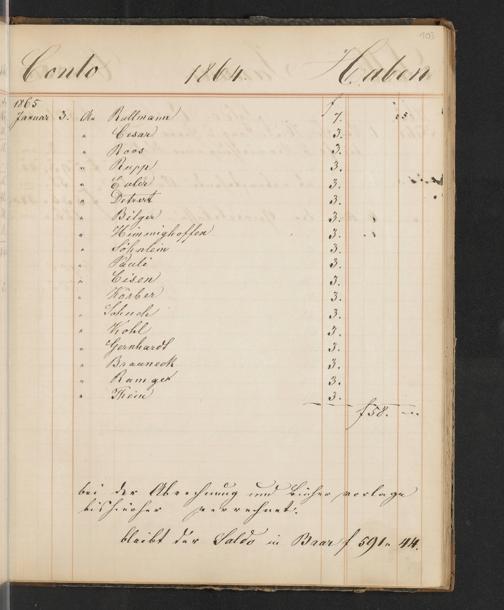 103
Conto 1864 Haben
1865
Januar 3. An Rullmann 7.
" Cesar 3.
" Roos 3.
" Rupp 3.
" Euler 3.
" Detert 3.
" Bilger 3.
" Himmighoffen 3.
" Söhnlein 3.
" Pauli 3.
" Eisen 3.
" Körber 3.
" Schuch 3.
" Kohl 3.
" Gernhardt 3.
" Brauneck 3.
" Ramge 3.
" Thein 3.
f 58. --
bei der Abrechnung und Bücher vorlage
bishierher
bleibt der Saldo in Baar f 591 " 44.